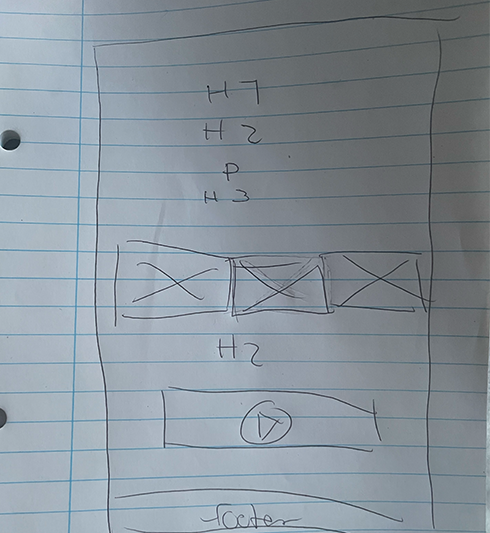 H1
H2
P
H3
H2
footer